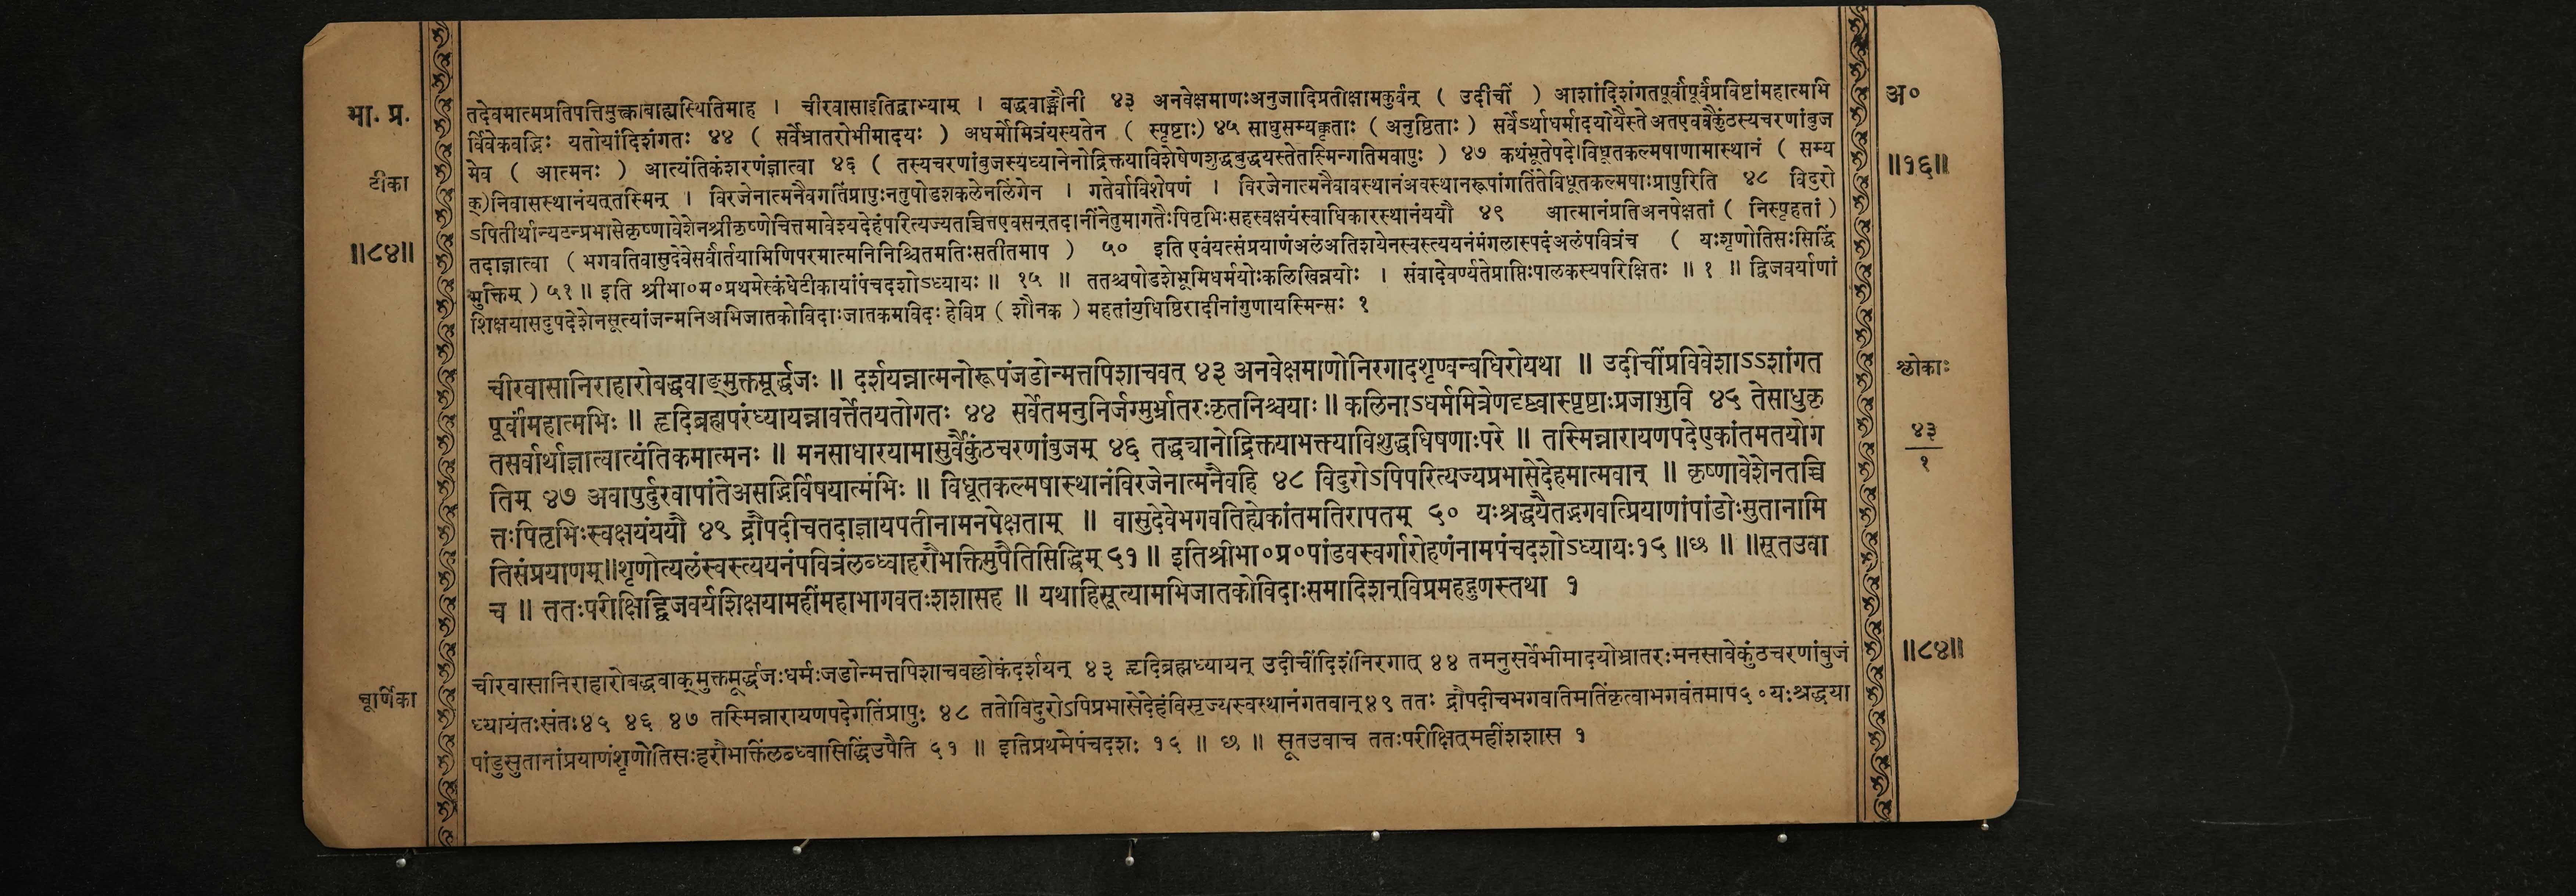 भा. प्र.
टीका
॥८४॥
चूर्णिका
तदेवमात्मप्रतिपत्तिमुक्त्वाबाह्यस्थितिमाह । चीरवासाइतिद्वाभ्याम् । बद्धवाङ्मौनी ४३ अनवेक्षमाणःअनुजादिप्रतीक्षामकुर्वन् ( उदीचीं ) आशांदिशंगतपूर्वांपूर्वंप्रविष्टांमहात्मभि
र्विवेकवद्भिः यतोयांदिशंगतः ४४ ( सर्वेभ्रातरोभीमादयः ) अधर्मोमित्रंयस्यतेन ( स्पृष्टाः) ४५ साधुसम्यक्कृताः ( अनुष्ठिताः ) सर्वेऽर्थाधर्मादयोयैस्ते अतएववैकुंठस्यचरणांबुज
मेव ( आत्मनः ) आत्यंतिकंशरणंज्ञात्वा ४६ ( तस्यचरणांबुजस्यध्यानेनोद्रिक्तयाविशेषेणशुद्धबुद्धयस्तेतस्मिन्गतिमवापुः ) ४७ कथंभूतेपदे।विधूतकल्मषाणामास्थानं ( सम्य
क्)निवासस्थानंयत्तस्मिन् । विरजेनात्मनैवगतिंप्रापुःनतुषोडशकलेनलिंगेन । गतेर्वाविशेषणं । विरजेनात्मनैवावस्थानंअवस्थानरूपांगतिंतेविधूतकल्मषाःप्रापुरिति ४८ विदुरो
ऽपितीर्थान्यटन्प्रभासेकृष्णावेशेनश्रीकृष्णेचित्तमावेश्यदेहंपरित्यज्यतच्चित्तएवसन्तदानींनेतुमागतैःपितृभिःसहस्वक्षयंस्वाधिकारस्थानंययौ ४९ आत्मानंप्रतिअनपेक्षतां ( निस्पृहतां )
तदाज्ञात्वा ( भगवतिवासुदेवेसर्वांर्तयामिणिपरमात्मनिनिश्चितमतिःसतीतमाप ) ५० इति एवंयत्संप्रयाणंअलंअतिशयेनस्वस्त्ययनंमंगलास्पदंअलंपवित्रंच ( यःशृणोतिसःसिद्धिं
मुक्तिम् ) ५१॥ इति श्रीभा०म०प्रथमेस्कंधेटीकायांपंचदशोऽध्यायः ॥ १५ ॥ ततश्चषोडशेभूमिधर्मयोःकलिखिन्नयोः । संवादेवर्ण्यतेप्राप्तिःपालकस्यपरिक्षितः ॥ १ ॥ द्विजवर्याणां
शिक्षयासदुपदेशेनसूत्यांजन्मनिअभिजातकोविदाःजातकमविदः हेविप्र ( शौनक ) महतांयुधिष्ठिरादीनांगुणायस्मिन्सः १
चीरवासानिराहारोबद्धवाङ्मुक्तमूर्द्धजः ॥ दर्शयन्नात्मनोरूपंजडोन्मत्तपिशाचवत् ४३ अनवेक्षमाणोनिरगादशृण्वन्बधिरोयथा ॥ उदीचींप्रविवेशाऽऽशांगत
पूर्वांमहात्मभिः ॥ हृदिब्रह्मपरंध्यायन्नावर्त्तेतयतोगतः ४४ सर्वेतमनुनिर्जग्मुर्भ्रातरःकृतनिश्चयाः ॥ कलिनाऽधर्ममित्रेणदृष्ट्वास्पृष्टाःप्रजाभुवि ४५ तेसाधुकृ
तसर्वार्थाज्ञात्वात्यंतिकमात्मनः ॥ मनसाधारयामासुर्वैकुंठचरणांबुजम् ४६ तद्ध्यानोद्रिक्तयाभक्त्याविशुद्धधिषणाःपरे ॥ तस्मिन्नारायणपदेएकांतमतयोग
तिम् ४७ अवापुर्दुरवापांतेअसद्भिर्विषयात्मभिः ॥ विधूतकल्मषास्थानंविरजेनात्मनैवहि ४८ विदुरोऽपिपरित्यज्यप्रभासेदेहमात्मवान् ॥ कृष्णावेशेनतच्चि
त्तःपितृभिःस्वक्षयंययौ ४९ द्रौपदीचतदाज्ञायपतीनामनपेक्षताम् ॥ वासुदेवेभगवतिह्येकांतमतिरापतम् ५० यःश्रद्धयैतद्भगवत्प्रियाणांपांडोःसुतानामि
तिसंप्रयाणम्॥शृणोत्यलंस्वस्त्ययनंपवित्रंलब्ध्वाहरौभक्तिमुपैतिसिद्धिम् ५१ ॥ इतिश्रीभा०प्र०पांडवस्वर्गारोहणंनामपंचदशोऽध्यायः१५ ॥छ ॥ ॥सूतउवा
च ॥ ततःपरीक्षिद्द्विजवर्यशिक्षयामहींमहाभागवतःशशासह ॥ यथाहिसूत्यामभिजातकोविदाःसमादिशन्विप्रमहद्गुणस्तथा १
चीरवासानिराहारोबद्धवाक्मुक्तमूर्द्धजःधर्मःजडोन्मत्तपिशाचवल्लोकंदर्शयन् ४३ हृदिब्रह्मध्यायन् उदीचींदिशंनिरगात् ४४ तमनुसर्वेभीमादयोभ्रातरःमनसावैकुंठचरणांबुजं
ध्यायंतःसंतः४५ ४६ ४७ तस्मिन्नारायणपदेगतिंप्रापुः ४८ ततोविदुरोऽपिप्रभासेदेहंविसृज्यस्वस्थानंगतवान् ४९ ततः द्रौपदीचभगवतिमतिंकृत्वाभगवंतमाप५०यःश्रद्धया
पांडुसुतानांप्रयाणंशृणोतिसःहरौभक्तिंलब्ध्वासिद्धिंउपैति ५१ ॥ इतिप्रथमेपंचदशः १५ ॥ छ ॥ सूतउवाच ततःपरीक्षित्महींशशास १
अ०
॥१६॥
श्लोकाः
४३
१
॥८४॥